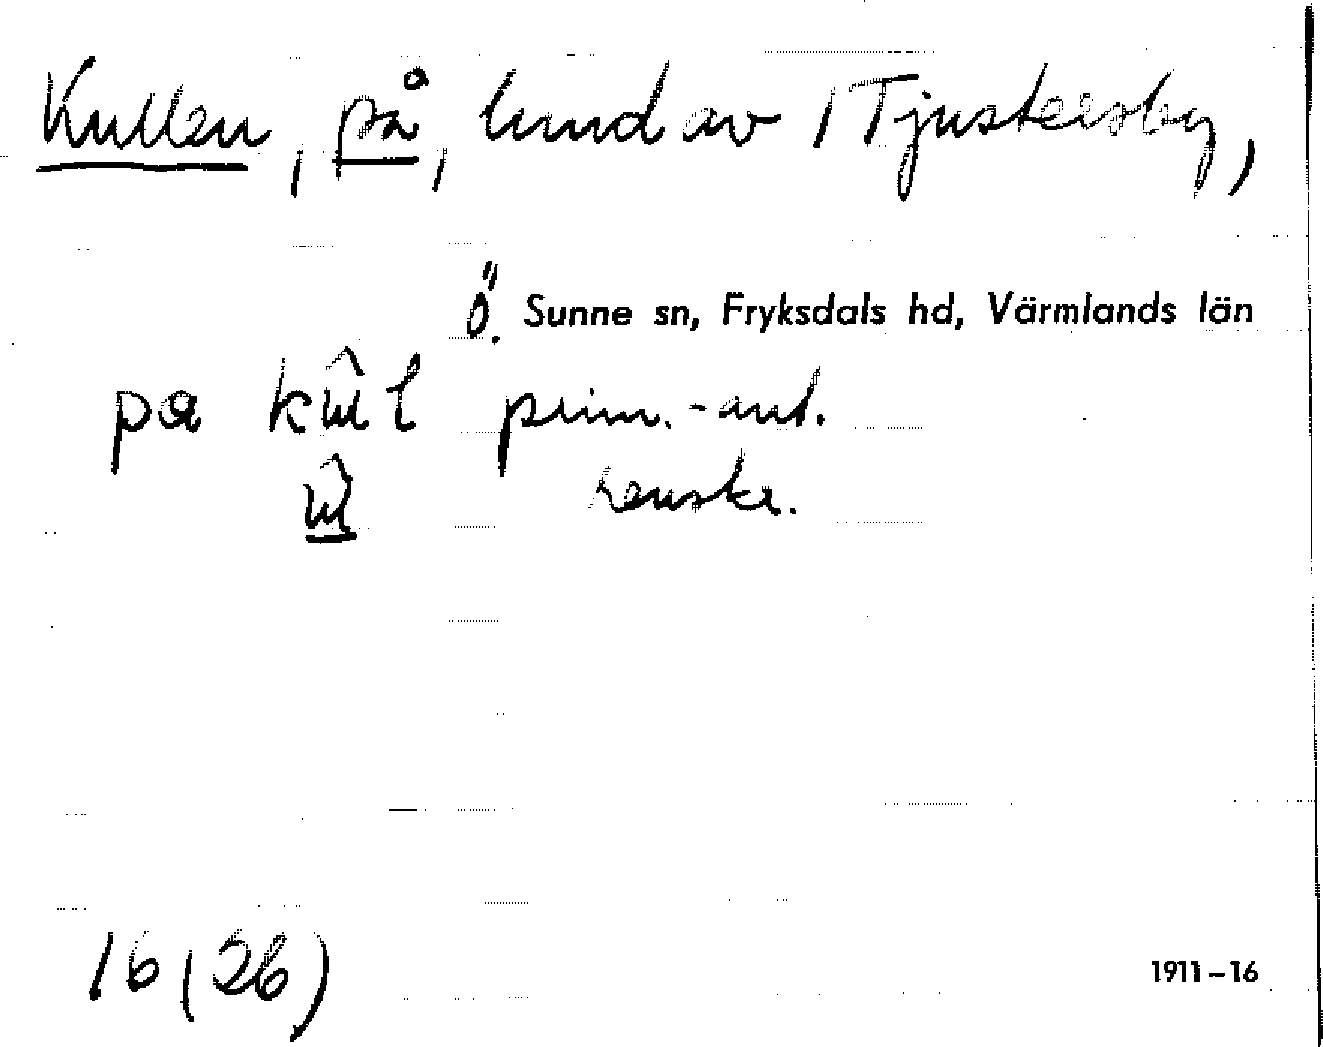 Kullen, på, hmd av 1 Tjustersby,
Ö. Sunne sn, Fryksdals hd, Värmlands län
pa kûl prim.-ant.
renskr.
16 (26)
1911–16